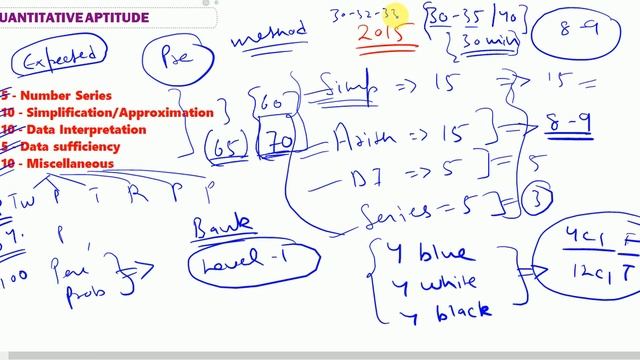 QUANTITATIVE APTITUDE
Expected
Pre
method
30-32-33
2015
30-35/40
30 min
8-9
5 - Number Series
10 - Simplification/Approximation
10 - Data Interpretation
5 - Data sufficiency
10 - Miscellaneous
60
65
70
Simp => 15 => 15 =
Arith => 15 8-9
DI => 5 5
Series = 5 3
TW P T R P P
P
100 Per
Prob
Bank
Level - I
4 blue
4 white
4 black
4C1 F
12C1 T